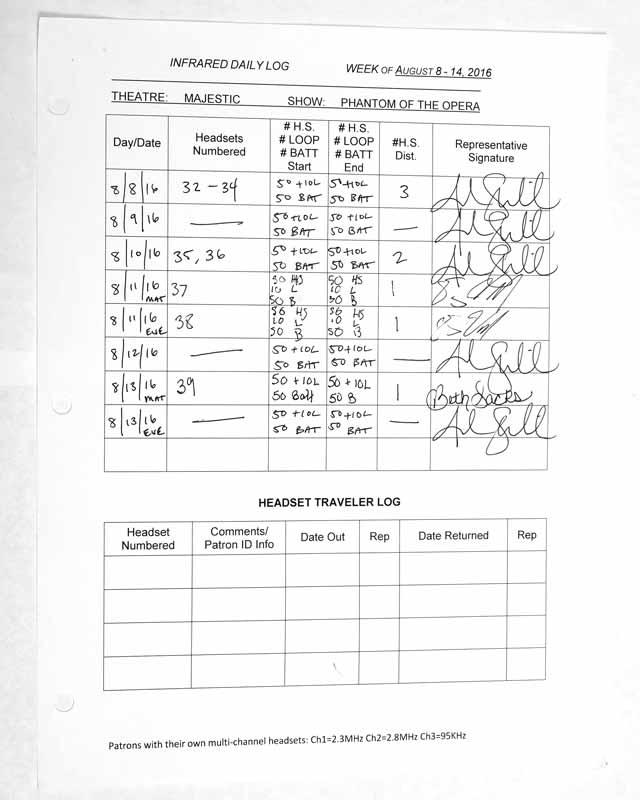 INFRARED DAILY LOG WEEK OF AUGUST 8 - 14, 2016
THEATRE: MAJESTIC SHOW: PHANTOM OF THE OPERA
Day/Date Headsets Numbered # H.S. # LOOP # BATT Start # H.S. # LOOP # BATT End #H.S. Dist. Representative Signature
8/8/16 32 - 34 50 +10L 50 BAT 50 +10L 50 BAT 3
8/9/16 — 50 +10L 50 BAT 50 +10L 50 BAT —
8/10/16 35, 36 50 +10L 50 BAT 50 +10L 50 BAT 2
8/11/16 MAT 37 50 HS 10 L 50 B 50 HS 10 L 50 B 1
8/11/16 EVE 38 50 HS 10 L 50 B 50 HS 10 L 50 B 1
8/12/16 — 50 +10L 50 BAT 50 +10L 50 BAT —
8/13/16 MAT 39 50 +10L 50 Batt 50 +10L 50 B 1 Beth Sacks
8/13/16 EVE — 50 +10L 50 BAT 50 +10L 50 BAT —
HEADSET TRAVELER LOG
Headset Numbered Comments/ Patron ID Info Date Out Rep Date Returned Rep
Patrons with their own multi-channel headsets: Ch1=2.3MHz Ch2=2.8MHz Ch3=95KHz